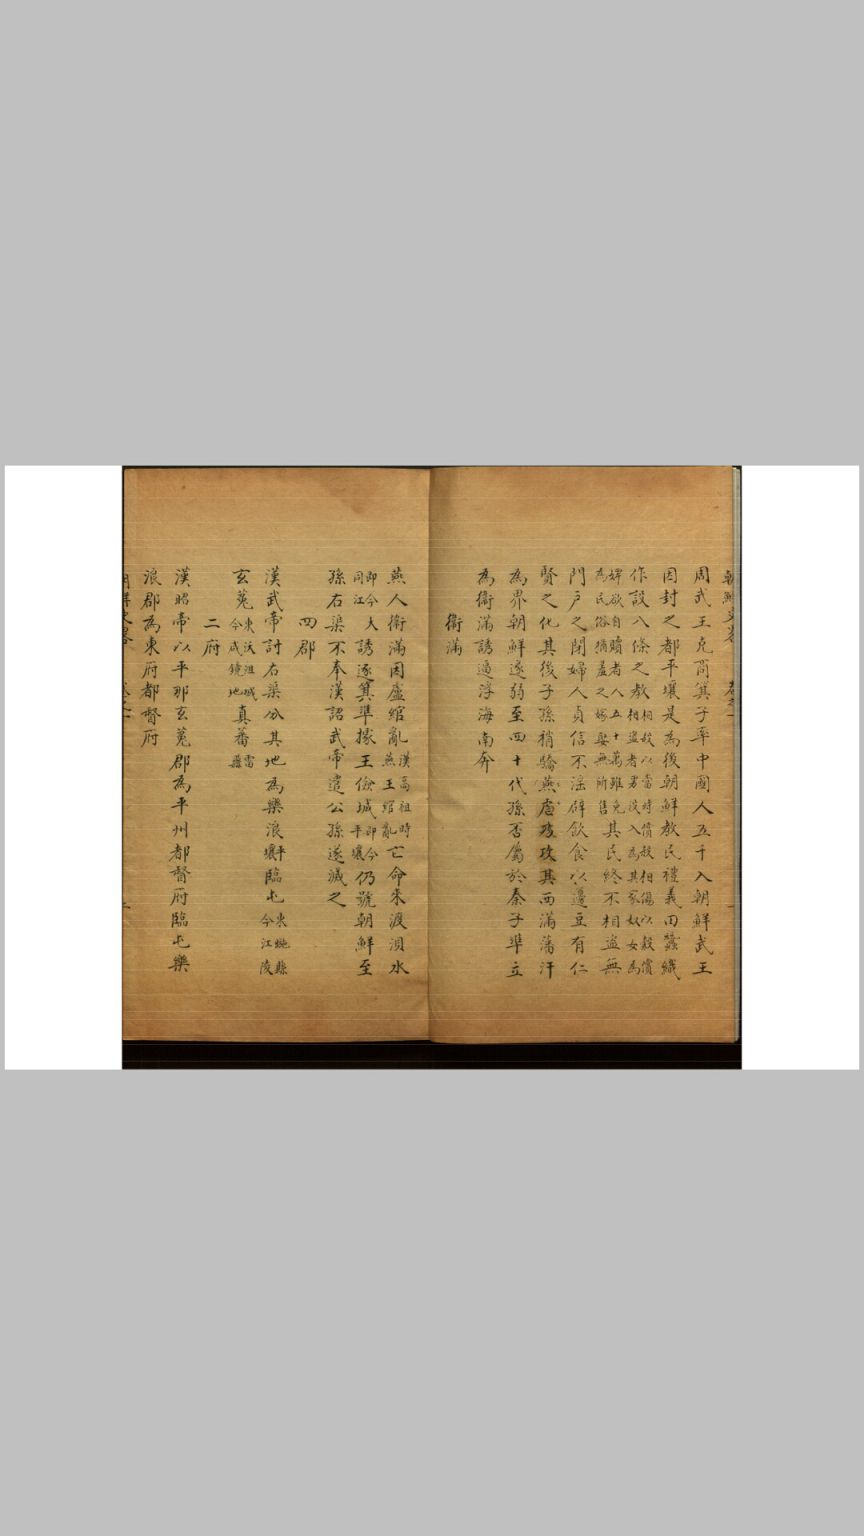 周武王克商箕子率中國人五千入朝鮮武王
因封之都平壤是為後朝鮮教民禮義田蠶織
作設八條之教相殺以當時償殺相傷以穀償相盜者男没入為其家奴女為
婢欲自贖者人五十萬雖免為民俗猶羞之嫁娶無所售其民終不相盜無
門戶之閉婦人貞信不淫辟飲食以籩豆有仁
賢之化其後子孫稍驕燕攻其西滿藩汗
為界朝鮮遂弱至四十代孫否屬於秦子準立
為衛滿誘逼浮海南奔
衛滿
燕人衛滿因盧綰亂漢高祖時燕王綰亂亡命來渡浿水
即今大同江誘逐箕準據王儉城即今平壤仍號朝鮮至
孫右渠不奉漢詔武帝遣公孫遂滅之
四郡
漢武帝討右渠分其地為樂浪平壤臨屯東暆縣今江陵
玄菟東沃沮城今咸鏡地真蕃霅縣
二府
漢昭帝以平那玄菟郡為平州都督府臨屯樂
浪郡為東府都督府